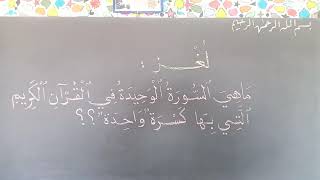 بسم الله الرحمن الرحيم
لُغْــز :
مَاهِيَ ٱلسُّورَةُ ٱلْوَحِيدَةُ فِي ٱلْقُرْآنِ ٱلْكَرِيمِ
ٱلَّتِي بِهَا كَسْرَةٌ وَاحِدَةٌ ؟؟